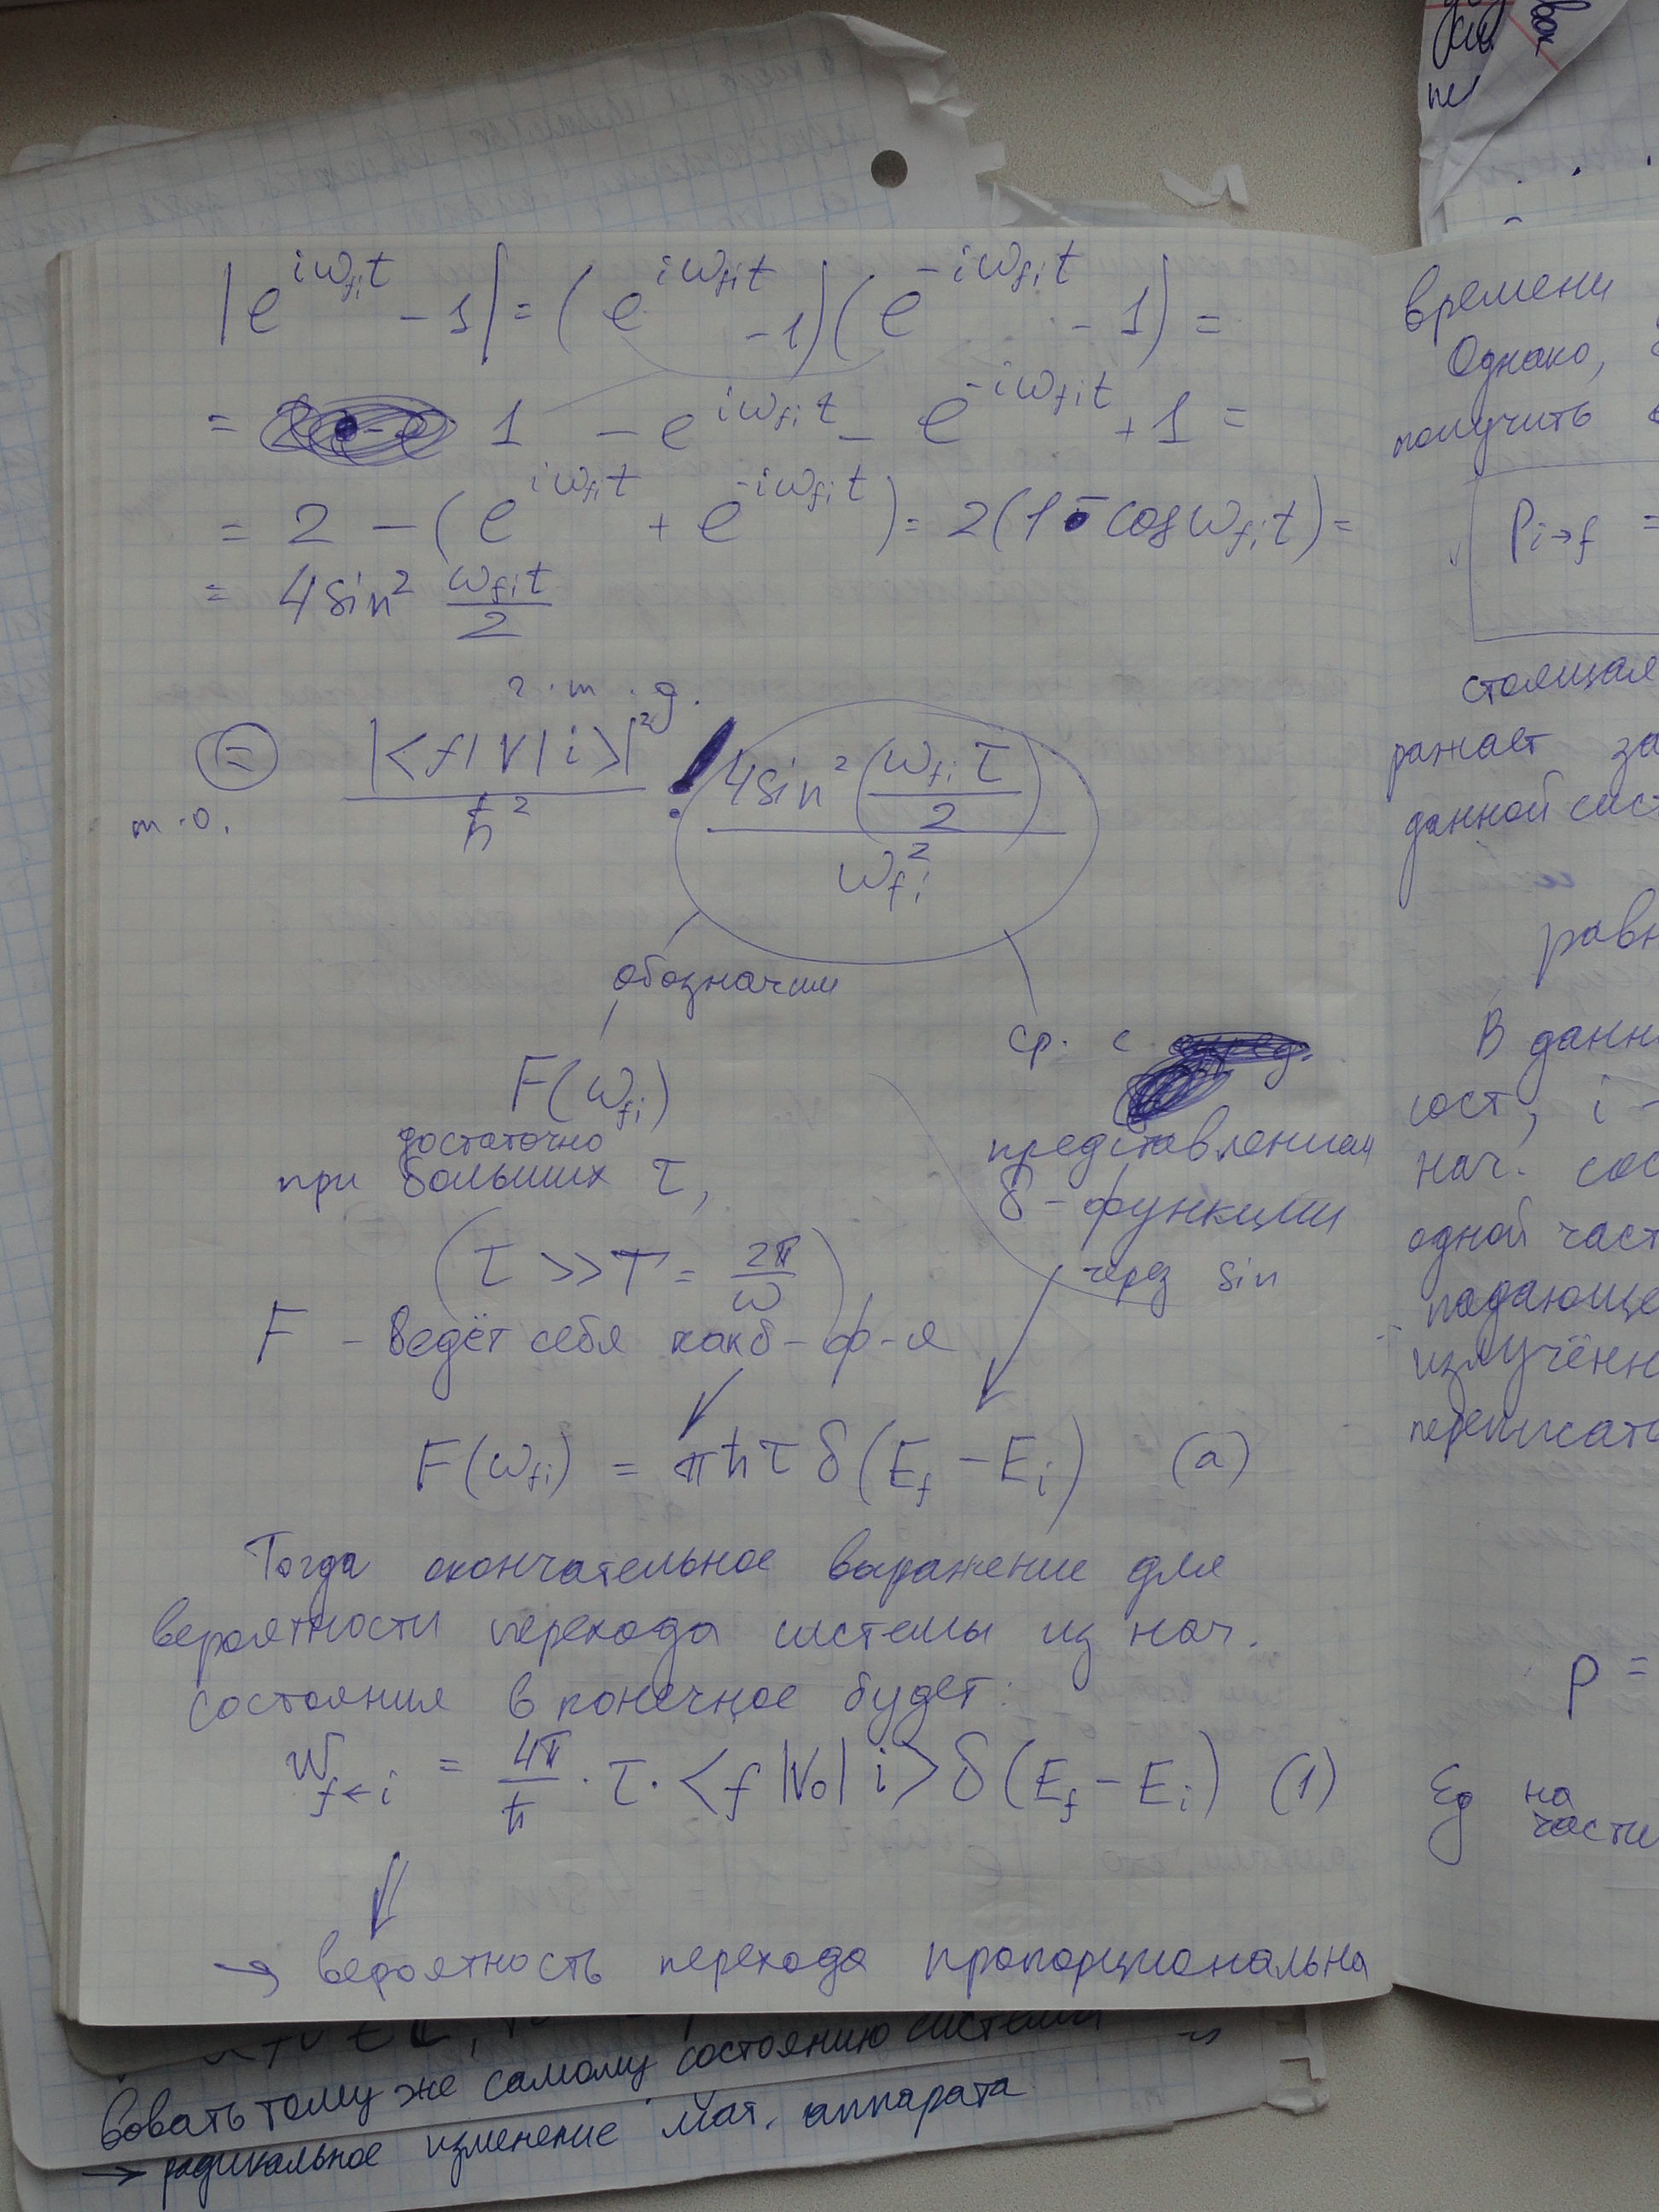 |e^{iω_{fi}t} - 1| = (e^{iω_{fi}t} - 1)(e^{-iω_{fi}t} - 1) =
= 1 - e^{iω_{fi}t} - e^{-iω_{fi}t} + 1 =
= 2 - (e^{iω_{fi}t} + e^{-iω_{fi}t}) = 2(1 - cos ω_{fi}t) =
= 4 sin² ω_{fi}t / 2
ч.т.д.
т.о. (=) |<f|V|i>|² / ħ² · 4 sin² (ω_{fi}τ / 2) / ω_{fi}²
обозначим
F(ω_{fi})
ср. с
представлением
δ-функции
через sin
достаточно
при больших τ,
(τ >> T = 2π/ω)
F - ведёт себя как δ-ф-я
F(ω_{fi}) = πħτ δ(E_f - E_i) (a)
Тогда окончательное выражение для
вероятности перехода системы из нач.
состояния в конечное будет:
W_{f←i} = 4π/ħ · τ · <f|V₀|i> δ(E_f - E_i) (1)
→ вероятность перехода пропорциональна
времени
Однако,
получить
P_{i→f} =
стоящая
ражает за
данной сист
равн
В данн
сост, i -
нач. сос
одной част
падающе
излучённ
переписат
P =
Ед на
части
вовать тому же самому состоянию системы
→ радикальное изменение мат. аппарата